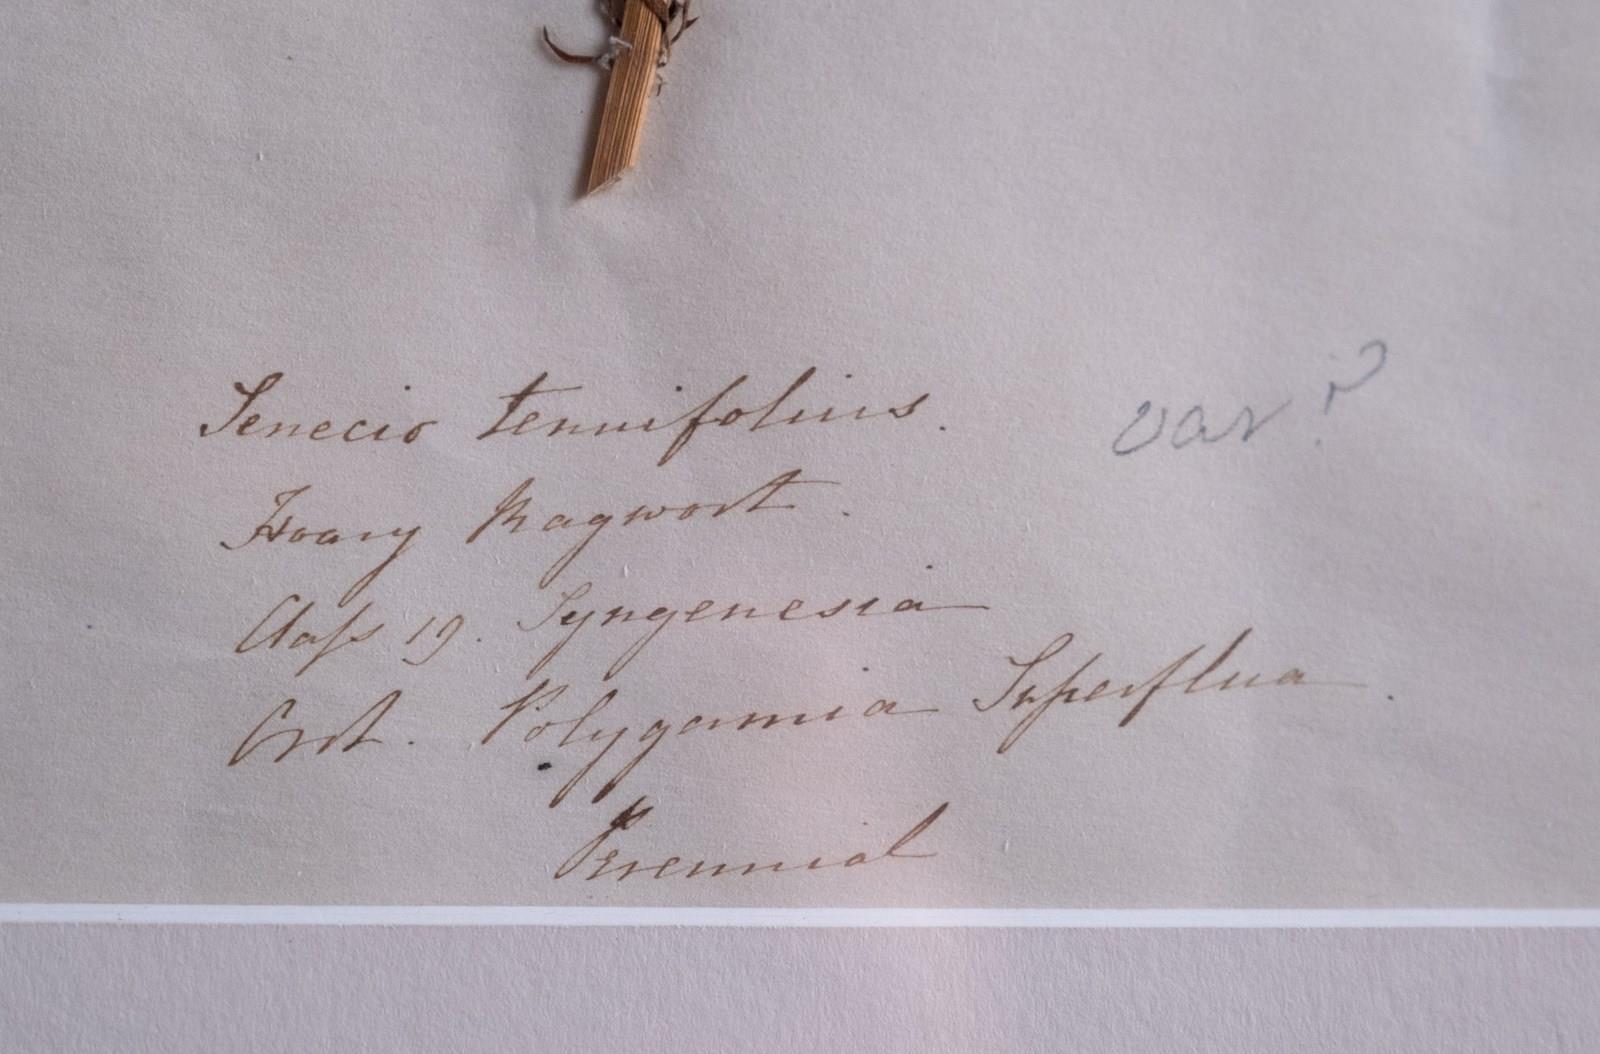 Senecio tenuifolius. var?
Hoary Ragwort.
Claſs 19. Syngenesia
Ord. Polygamia Superflua.
Perennial